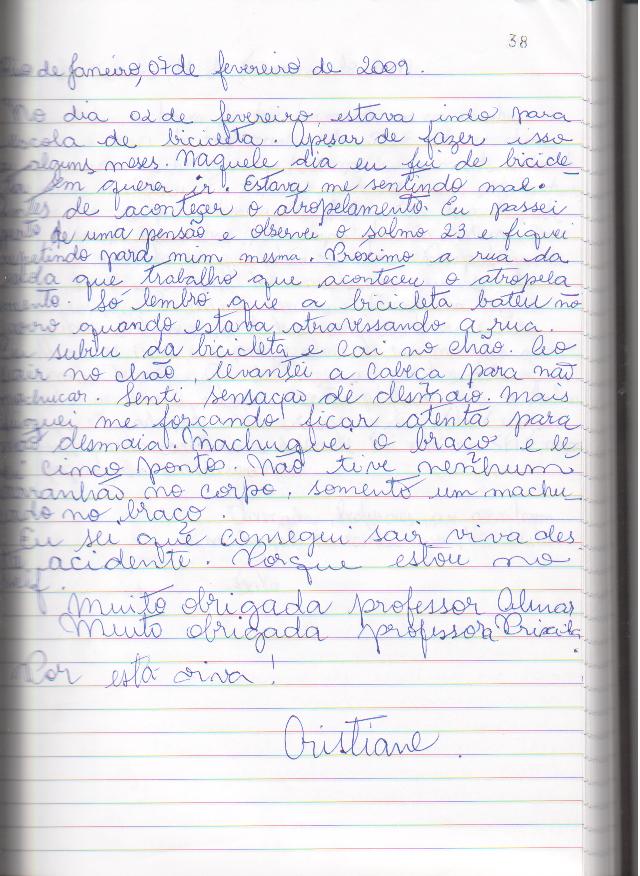 38
de Janeiro, 07 de fevereiro de 2009.
No dia 02 de fevereiro, estava indo para
escola de bicicleta. Apesar de fazer isso
alguns meses. Naquele dia eu fui de bicicle
ta sem querer ir. Estava me sentindo mal.
Antes de acontecer o atropelamento. Eu passei
perto de uma pensão e observei o salmo 23 e fiquei
repetindo para mim mesma. Próximo a rua da
que trabalho que aconteceu o atropela
mento. Só lembro que a bicicleta bateu no
carro quando estava atravessando a rua.
subiu da bicicleta e cai no chão. Ao
cair no chão, levantei a cabeça para não
machucar. Senti sensação de desmaio. Mais
fiquei me forçando ficar atenta para
não desmaia. Machuquei o braço e le
vei cinco ponto. Não tive nenhum
arranhão no corpo, somento um machu
cado no braço.
Eu sei que consegui sair viva des
te acidente. Porque estou no
Muito obrigada professor Olmar
Muito obrigada professora Priscila.
Por está viva!
Cristiane.